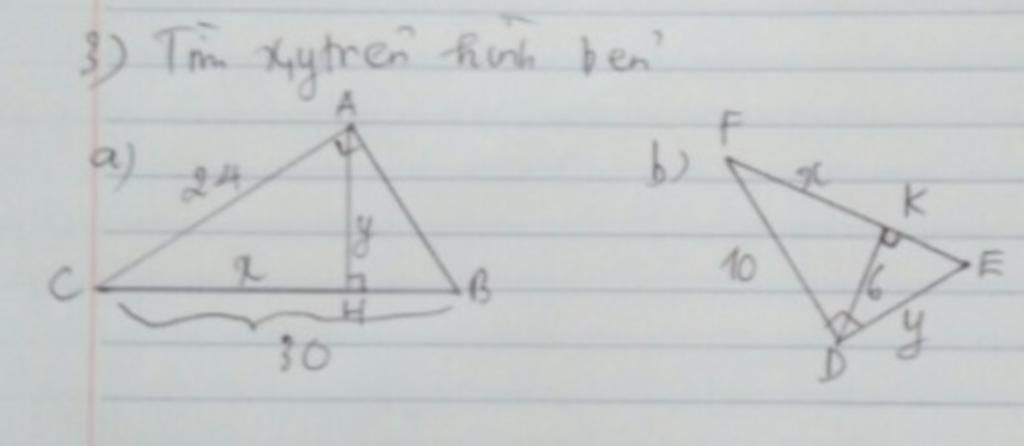 3) Tìm x,y trên hình bên
a)
A
24
y
x
C
H
B
30
b)
F
x
K
E
10
6
y
D